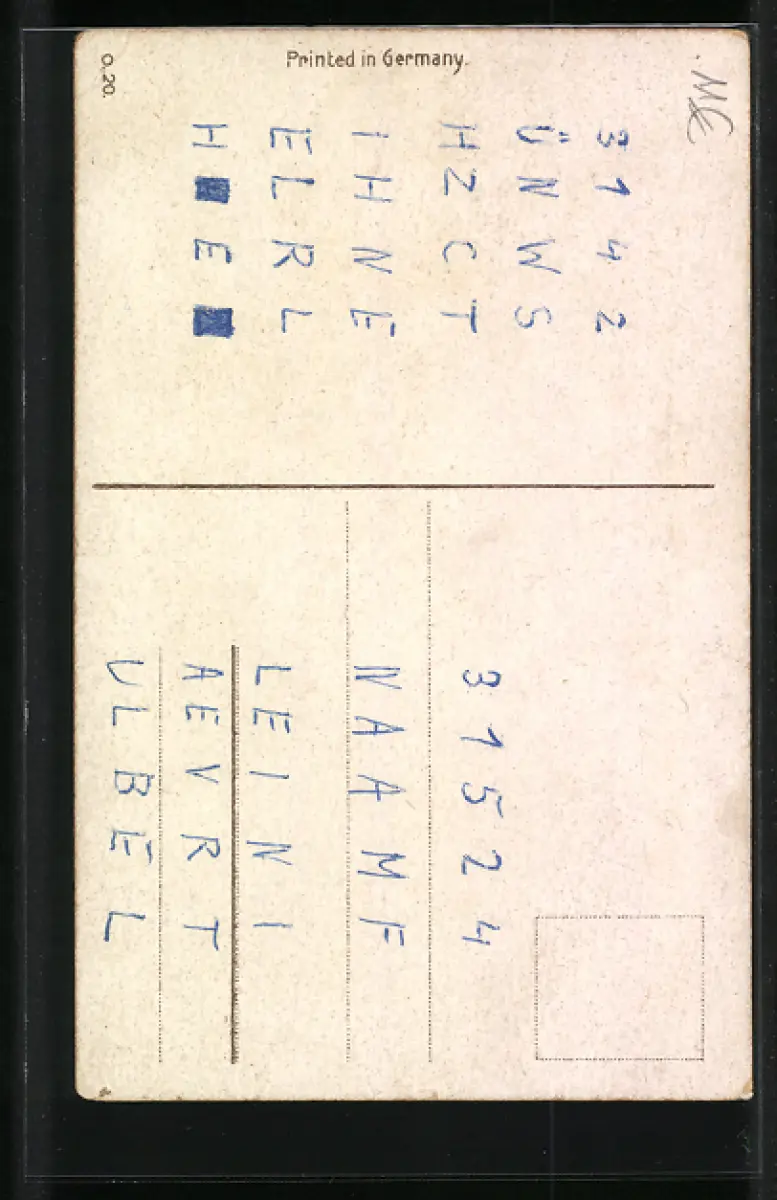 Printed in Germany.
O. 20.
3 1 4 2
Ü N W S
H Z C T
I H N E
E L R L
H ■ E ■
3 1 5 2 4
N A A M F
L E I N I
A E V R T
U L B E L